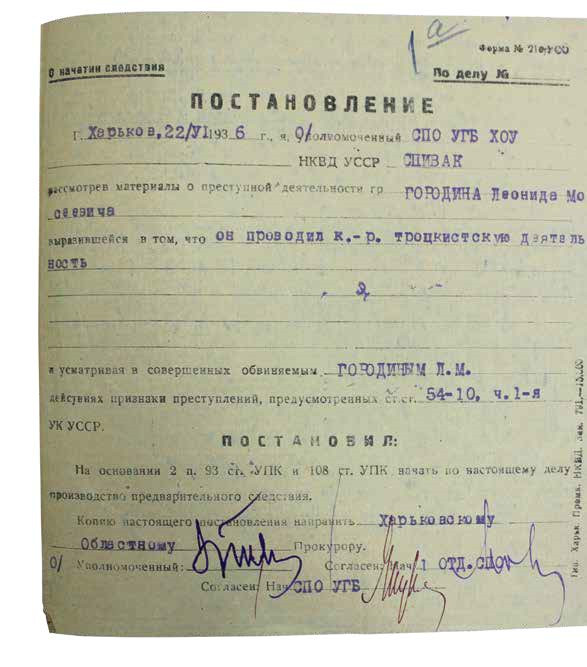 1а
Форма №
О начатии следствия
По делу №
ПОСТАНОВЛЕНИЕ
Г. Харьков, 22/VI 1936 г., я, О/полномоченный СПО УГБ ХОУ
НКВД УССР СПИВАК
рассмотрев материалы о преступной деятельности гр ГОРОДИНА Леонида Мо
сеевича
выразившейся в том, что он проводил к.-р. троцкистскую деятель
ность
и усматривая в совершенных обвиняемым ГОРОДИНЫМ Л.М.
действиях признаки преступлений, предусмотренных ст.ст. 54-10, ч.1-я
УК УССР.
ПОСТАНОВИЛ:
На основании 2 п. 93 ст. УПК и 108 ст. УПК начать по настоящему делу
производство предварительного следствия.
Копию настоящего постановления направить Харьковскому
Областному Прокурору.
О/ Уполномоченный: Согласен: Нач. 1 ОТД. СПО
Согласен: Нач. СПО УГБ
Тип. Харьк Пром. НКВД. зак. 791.